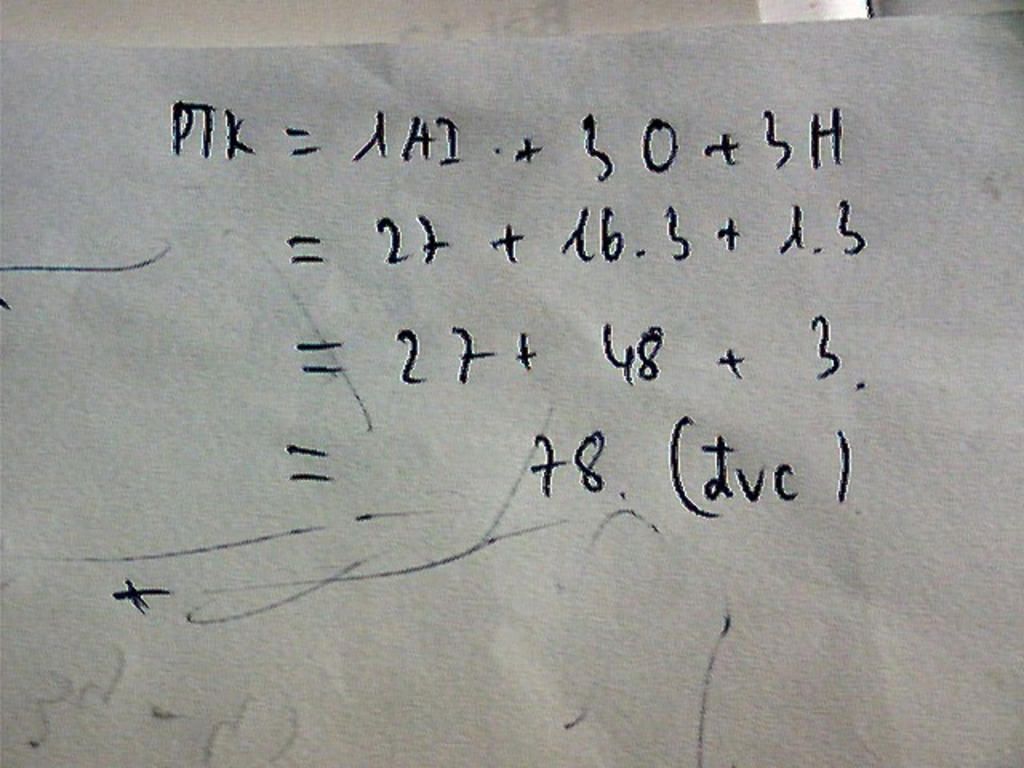 PTK = 1Al + 3 O + 3H
= 27 + 16.3 + 1.3
= 27 + 48 + 3.
= 78. (đvc)
+